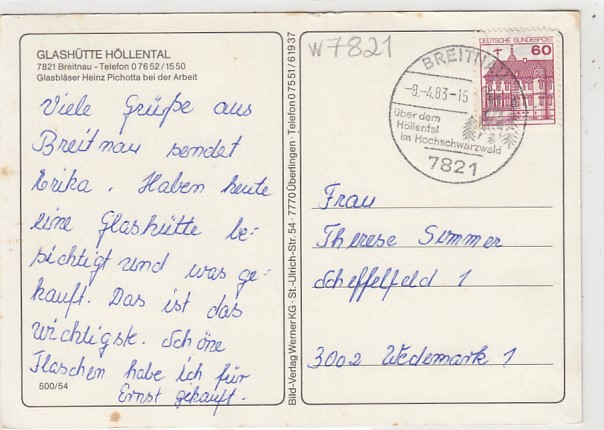 GLASHÜTTE HÖLLENTAL
7821 Breitnau - Telefon 0 76 52 / 15 50
Glasbläser Heinz Pichotta bei der Arbeit
Viele Grüße aus
Breitnau sendet
Erika. Haben heute
eine Glashütte be-
sichtigt und was ge-
kauft. Das ist das
wichtigste. Schöne
Flaschen habe ich für
Ernst gekauft.
500/54
Bild-Verlag Werner KG · St.-Ulrich-Str. 54 · 7770 Überlingen · Telefon 0 75 51 / 6 19 37
W7821
BREITNAU
-8.-4.83-15
über dem
Höllental
im Hochschwarzwald
7821
DEUTSCHE BUNDESPOST
60
Frau
Therese Summer
Scheffelfeld 1
3002 Wedemark 1